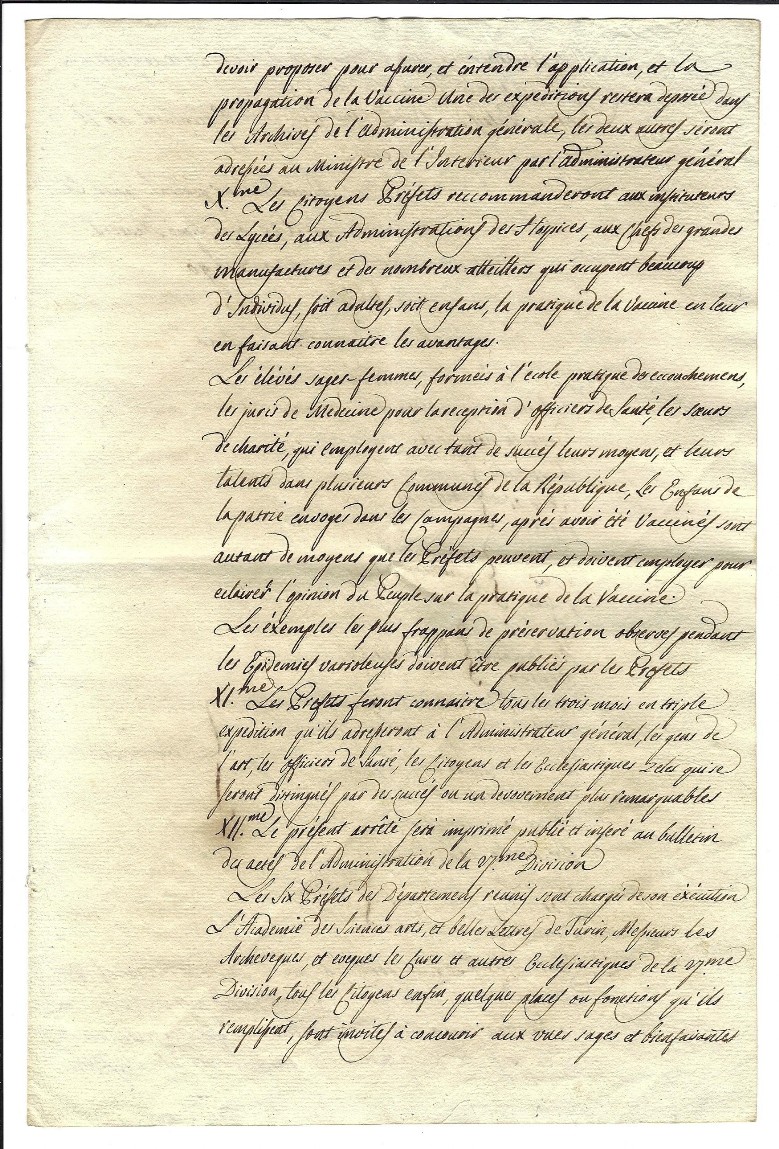 devoir proposer pour assurer, et étendre l'application, et la
propagation de la Vaccine Une des expéditions restera deposée dans
les Archives de l'administration générale, les deux autres séront
adressées au Ministre de l'Interieur par l'administrateur général
X.me Les Citoyens Préfets reccommanderont aux instituteurs
des Lycées, aux Administrations des Hospices, aux Chefs des grandes
manufactures et des nombreux atteilliers qui occupent beaucoup
d'Individus, soit adultes, soit enfans, la pratique de la Vaccine en leur
en faisant connaitre les avantages.
Les élévés sages-femmes, formeés à l'école pratique des accouchemens,
les juris de Médecine pour la reception d'officiers de Santé, les sœurs
de charité, qui employent avec tant de succés leurs moyens, et leurs
talents dans plusieurs Communes de la République, Les Enfans de
la patrie envoyés dans les Campagnes, aprés avoir été Vaccinés sont
autant de moyens que les Préfets peuvent, et doivent employer pour
eclairér l'opinion du Peuple sur la pratique de la Vaccine.
Les éxemples les plus frappans de préservation observés pendant
les Epidemies varioleuses doivent être publiés par les Préfets
XI.me Les Préfets feront connaitre tous les trois mois en triple
expedition qu'ils adresseront à l'Administrateur général, les gens de
l'art, les officiers de Santé, les Citoyens et les Ecclesiastiques Zelés qui se
seront distingués par des succés ou un devouement plus remarquables
XII.me Le présent arrêté sera imprimé publié et inseré au bulletin
des actes de l'Administration de la 27.me Division
Les Six Préfets des Départemens réunis sont chargés de son exécution
L'Academie des Sciences arts, et belles Lettres de Turin, Messieurs les
Archeveques, et eveques les Cures et autres Ecclesiastiques de la 27.me
Division, tous les Citoyens enfin, quelques places ou fonctions qu'ils
remplissent, sont invités à concourir aux vues sages et bienfaisantes